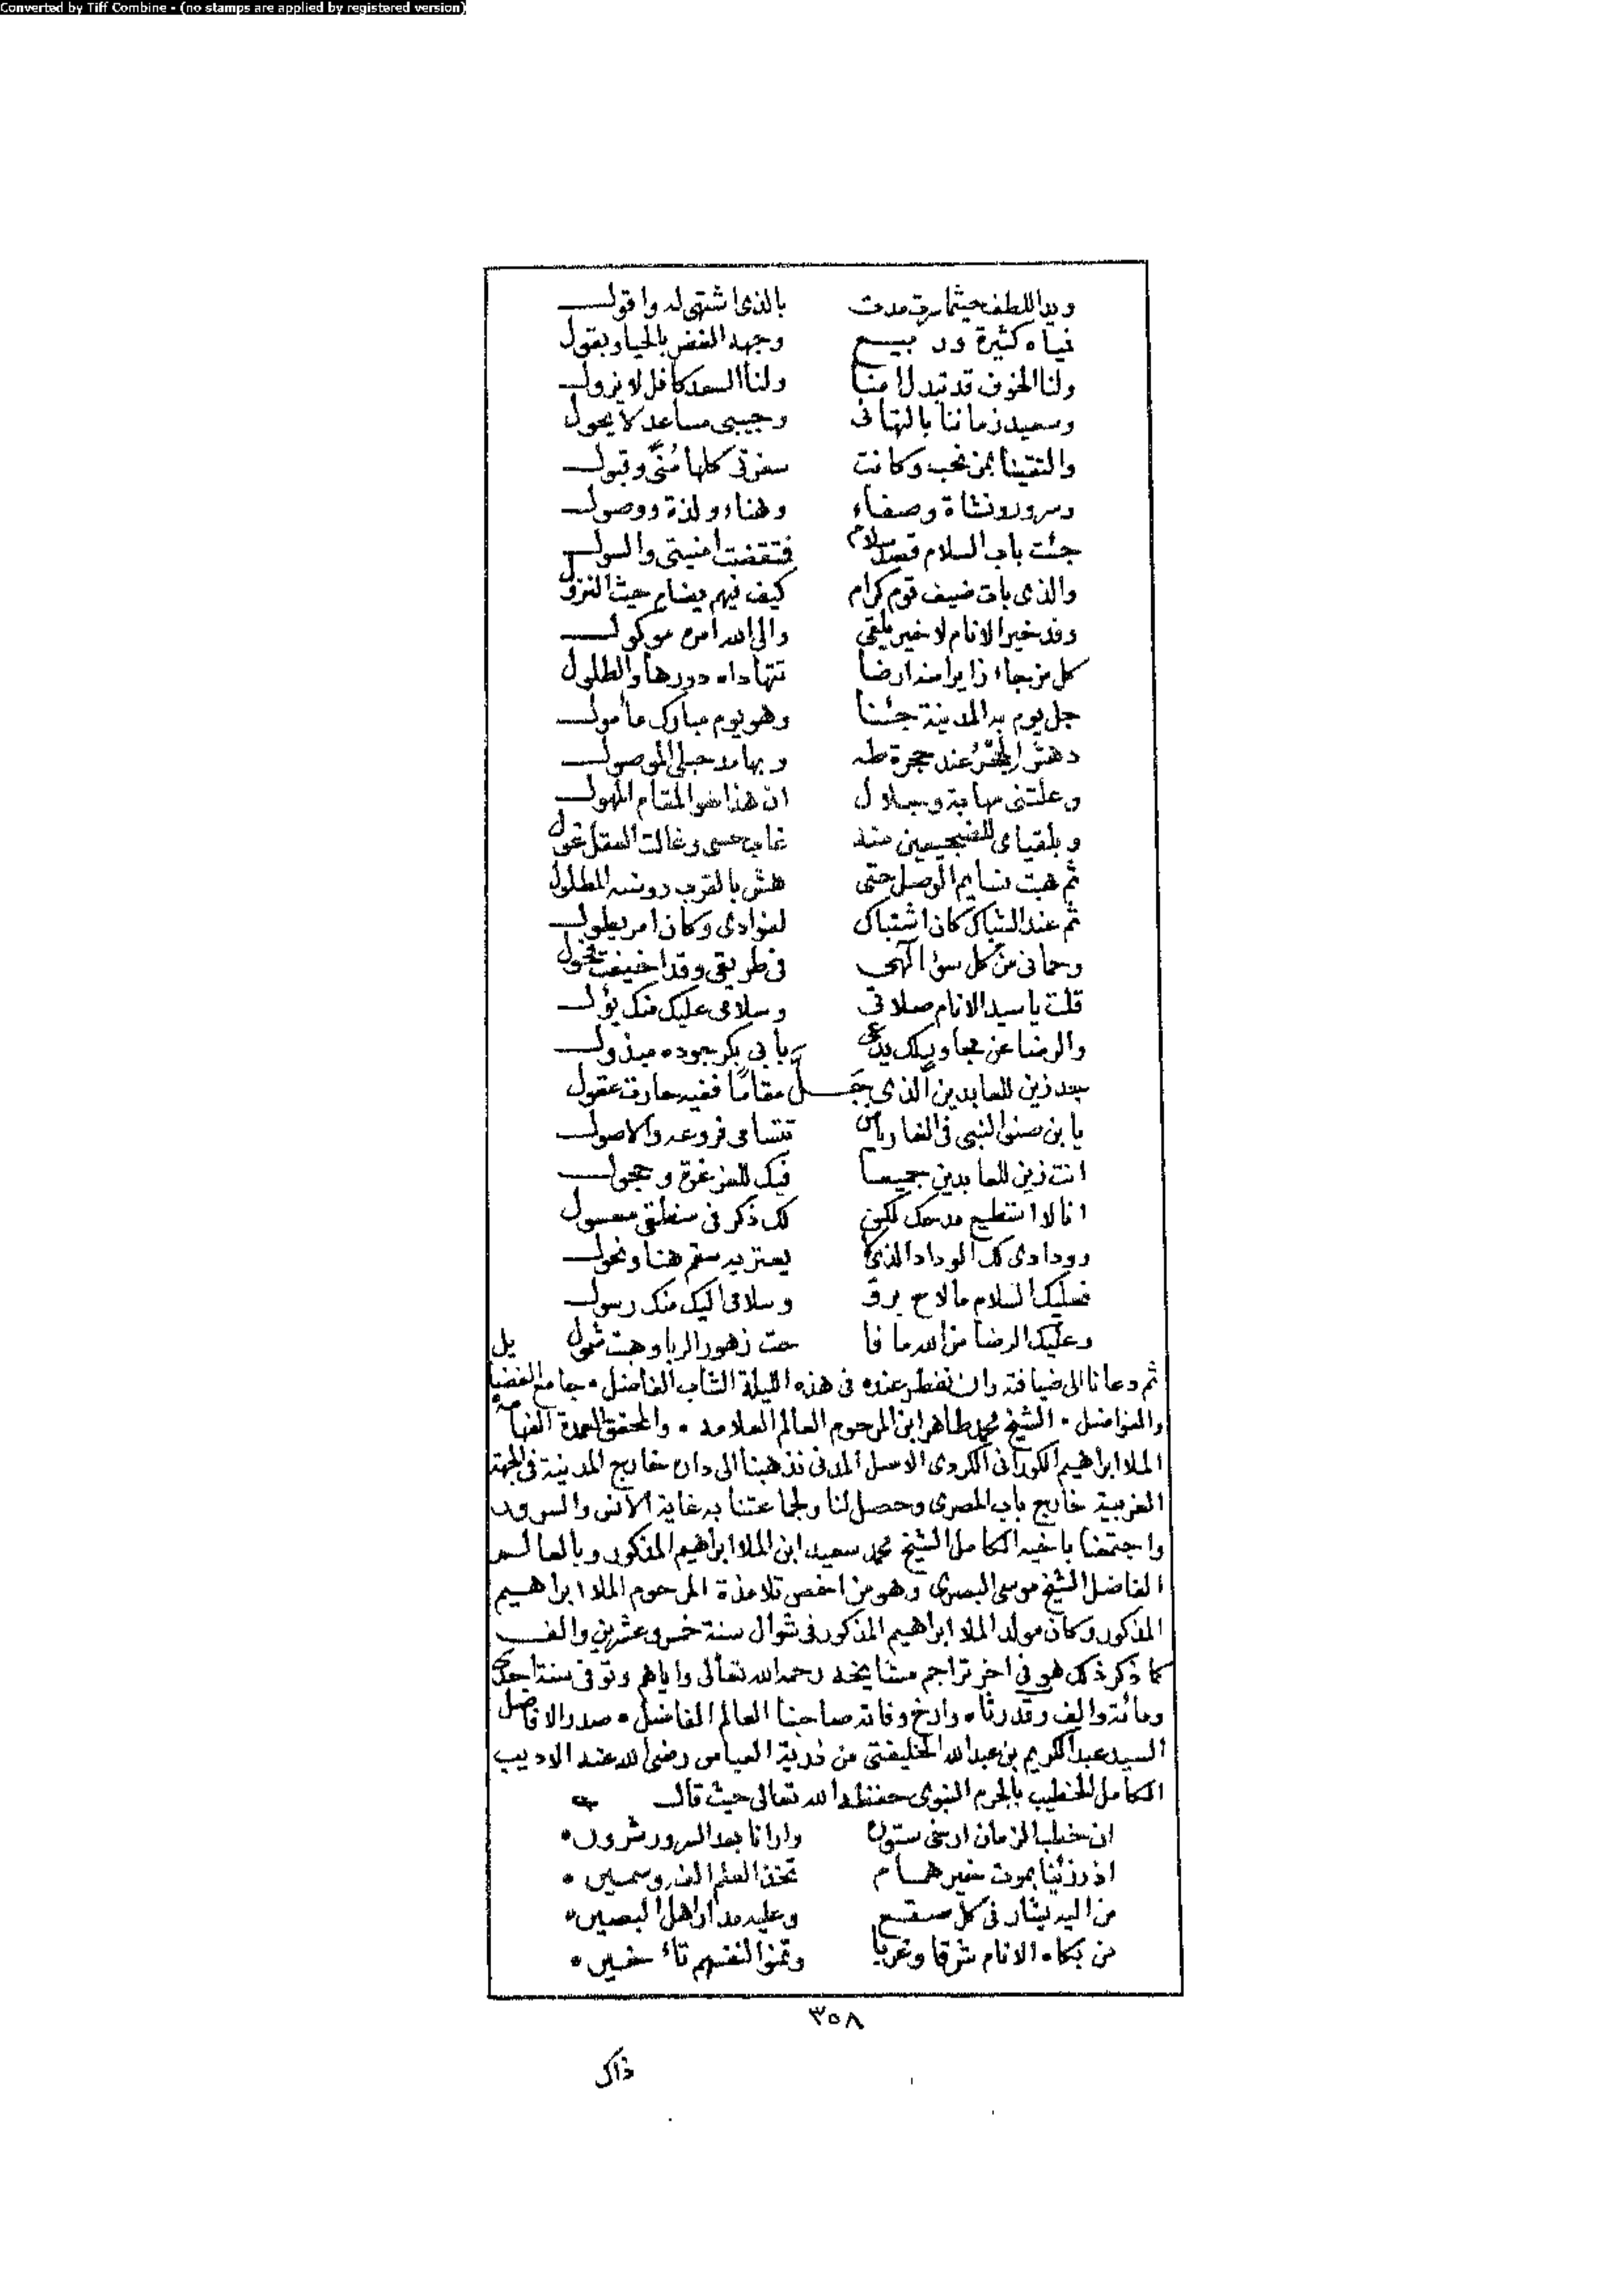 Converted by Tiff Combine - (no stamps are applied by registered version)
ويد اللطف حيثما سرت مدت بالذي اشتهى له واقول
فمياه كثيرة وربيع وجهه الغض بالحيا وبقول
ولنا الخوف قد تبدل امنا ولنا السعد كافل لا يزول
وسعيد زماننا بالتهاني وحبيبي مساعد لا يحول
والتقينا بمن نحب وكانت سفرتي كلها مُنًى وقبول
وسرور ونشاة وصفاء وهناء ولذة ووصول
جئت باب السلام قصد سلام فتقضت امنيتي والسول
والذي بات ضيف قوم كرام كيف فيهم يضام حيث النزول
وفد خير الانام لا ضير يلقى والى الله امره موكول
كل من جاء زايرا منه ارضا تتهاداه دورها والطلول
جل يوم به المدينة جئنا وهو يوم مبارك مأمول
دهش عند حجرة طه وبها مد حبلي الموصول
وعلتني مهابة وجلال ان هذا هو المقام المهول
وبلقياي للضجيعين منه غاب حسي وغالت العقل غول
ثم هبت نسايم الوصل حتى هش بالقرب روضه المطلول
ثم عند الشباك كان اشتباك لفؤادي وكان امر يطول
وحماني من كل سوء الهي في طريقي وقد اخيفت فحول
قلت يا سيد الانام صلاتي وسلامي عليك منك يؤل
والرضا عن مجاوريك يدعى بابي بكر جوده مبذول
بعد زين العابدين الذي جَلَّ مقامًا ففيه حارت عقول
يا بن صنو النبي في الغار يا من تتسامى فروعه والاصول
انت زين للعابدين جميعا فيك للعز غرة وحجول
انا لا استطيع مدحك لكن لك ذكر في منطقي معسول
وودادي لك الوداد الذي يعتريه سقم هنا ونحول
فعليك السلام ما لاح برق وسلامي اليك منك رسول
وعليك الرضا من الله ما فا حت زهور الربا وهبت شمول
ثم دعانا الى ضيافته وان نفطر عنده في هذه الليلة الشاب الفاضل • جامع الفضايل
والفواضل • الشيخ محمد طاهر ابن المرحوم العالم العلامه • والمحقق العمدة الفهامه
الملا ابراهيم الكوراني الكردي الاصل المدني فذهبنا الى داره خارج المدينة في الجهة
الغربية خارج باب المصري وحصل لنا ولجماعتنا به غاية الانس والسرور
واجتمعنا باخيه الكامل الشيخ محمد سعيد ابن الملا ابراهيم المذكور وبالعالم
الفاضل الشيخ موسى البصري وهو من اخص تلامذة المرحوم الملا ابراهيم
المذكور وكان مولد الملا ابراهيم المذكور في شوال سنة خمس وعشرين والف
كما ذكر ذلك هو في اخر تراجم مشايخه رحمه الله تعالى واياهم وتوفي سنة احدى
ومائة والف وقد رثاه وارخ وفاته صاحبنا العالم الفاضل • صدر الافاضل
السيد عبد الكريم بن عبد الله الخليفتي من ذرية العباس رضي الله عنه الاديب
الكامل الخطيب بالحرم النبوي حفظه الله تعالى حيث قال
ان خطب الزمان ارخى ستوره وارانا بعد السرور شروره •
اذ رزئنا بموت خير همام تخذ العلم الفه وسميره •
من اليه يشار في كل صقع وعليه مدار اهل البصيره •
من بكاه الانام شرقا وغربا وتمنوا لنفسهم تاخيره •
٣٥٨
ذاك